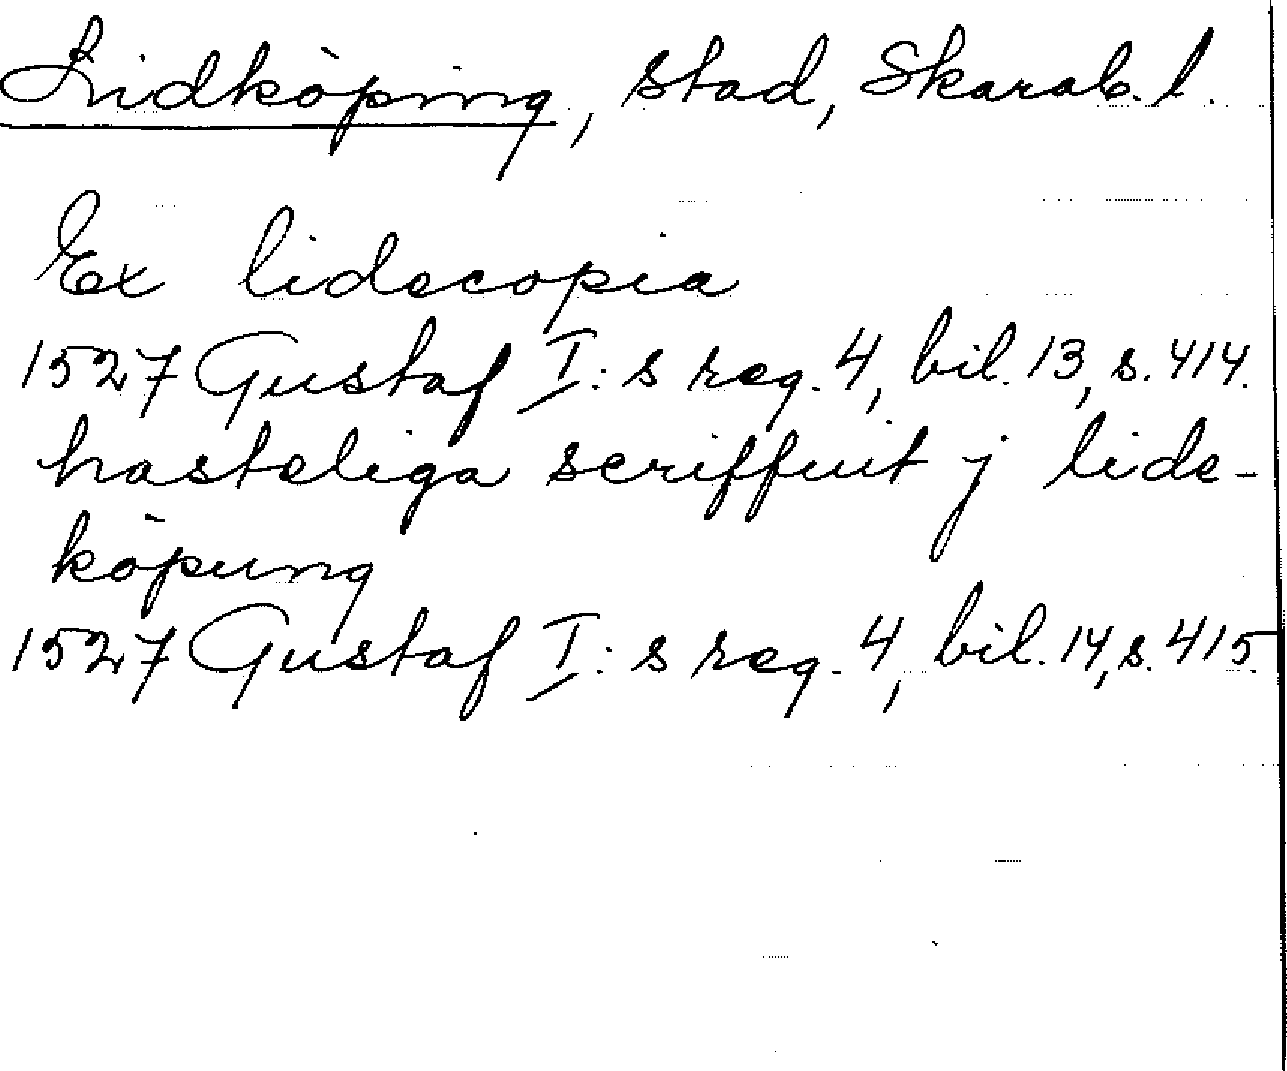 Lidköping, stad, Skarab. l.
Ex lidecopia
1527 Gustaf I:s reg. 4, bil. 13, s. 414.
hasteliga scriffuit j lide-
köpung
1527 Gustaf I:s reg. 4, bil. 14, s. 415